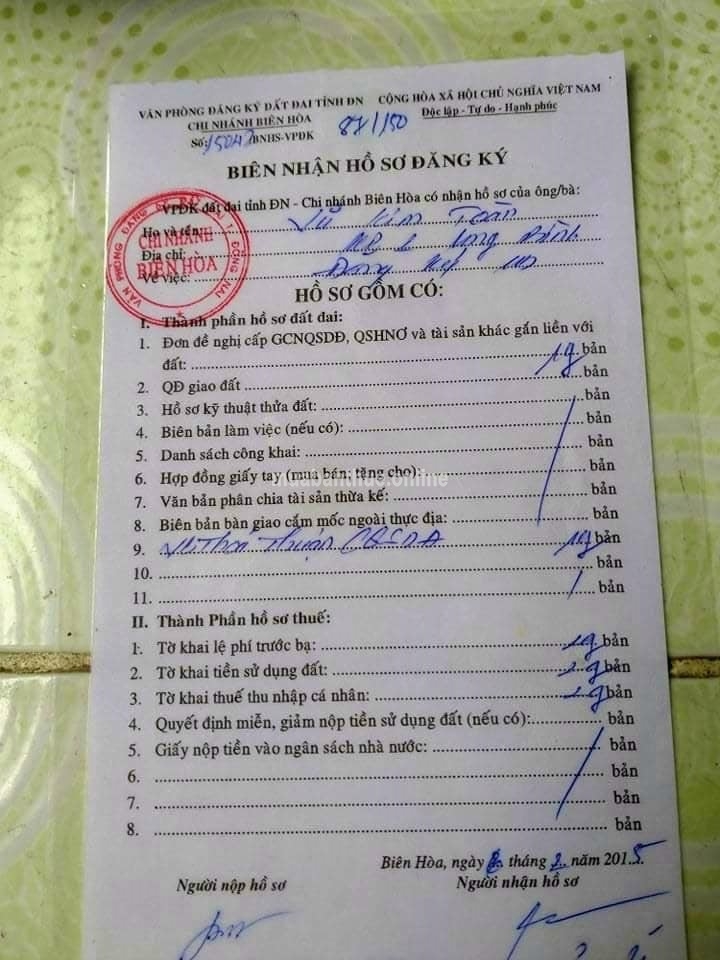 VĂN PHÒNG ĐĂNG KÝ ĐẤT ĐAI TỈNH ĐN CỘNG HÒA XÃ HỘI CHỦ NGHĨA VIỆT NAM
CHI NHÁNH BIÊN HÒA Độc lập - Tự do - Hạnh phúc
Số: /BNHS-VPĐK
BIÊN NHẬN HỒ SƠ ĐĂNG KÝ
VPĐK đất đai tỉnh ĐN - Chi nhánh Biên Hòa có nhận hồ sơ của ông/bà:
Họ và tên: Vũ Kim Toàn
Địa chỉ: Long Bình
Về việc:
CHI NHÁNH
BIÊN HÒA
HỒ SƠ GỒM CÓ:
I. Thành phần hồ sơ đất đai:
1. Đơn đề nghị cấp GCNQSDĐ, QSHNƠ và tài sản khác gắn liền với
đất: bản
2. QĐ giao đất bản
3. Hồ sơ kỹ thuật thửa đất: bản
4. Biên bản làm việc (nếu có): bản
5. Danh sách công khai: bản
6. Hợp đồng giấy tay (mua bán, tặng cho): bản
muabanthuc.online
7. Văn bản phân chia tài sản thừa kế: bản
8. Biên bản bàn giao cắm mốc ngoài thực địa: bản
9. bản
10. bản
11. bản
II. Thành Phần hồ sơ thuế:
1. Tờ khai lệ phí trước bạ: bản
2. Tờ khai tiền sử dụng đất: bản
3. Tờ khai thuế thu nhập cá nhân: bản
4. Quyết định miễn, giảm nộp tiền sử dụng đất (nếu có): bản
5. Giấy nộp tiền vào ngân sách nhà nước: bản
6. bản
7. bản
8. bản
Biên Hòa, ngày tháng 2 năm 2015
Người nộp hồ sơ Người nhận hồ sơ